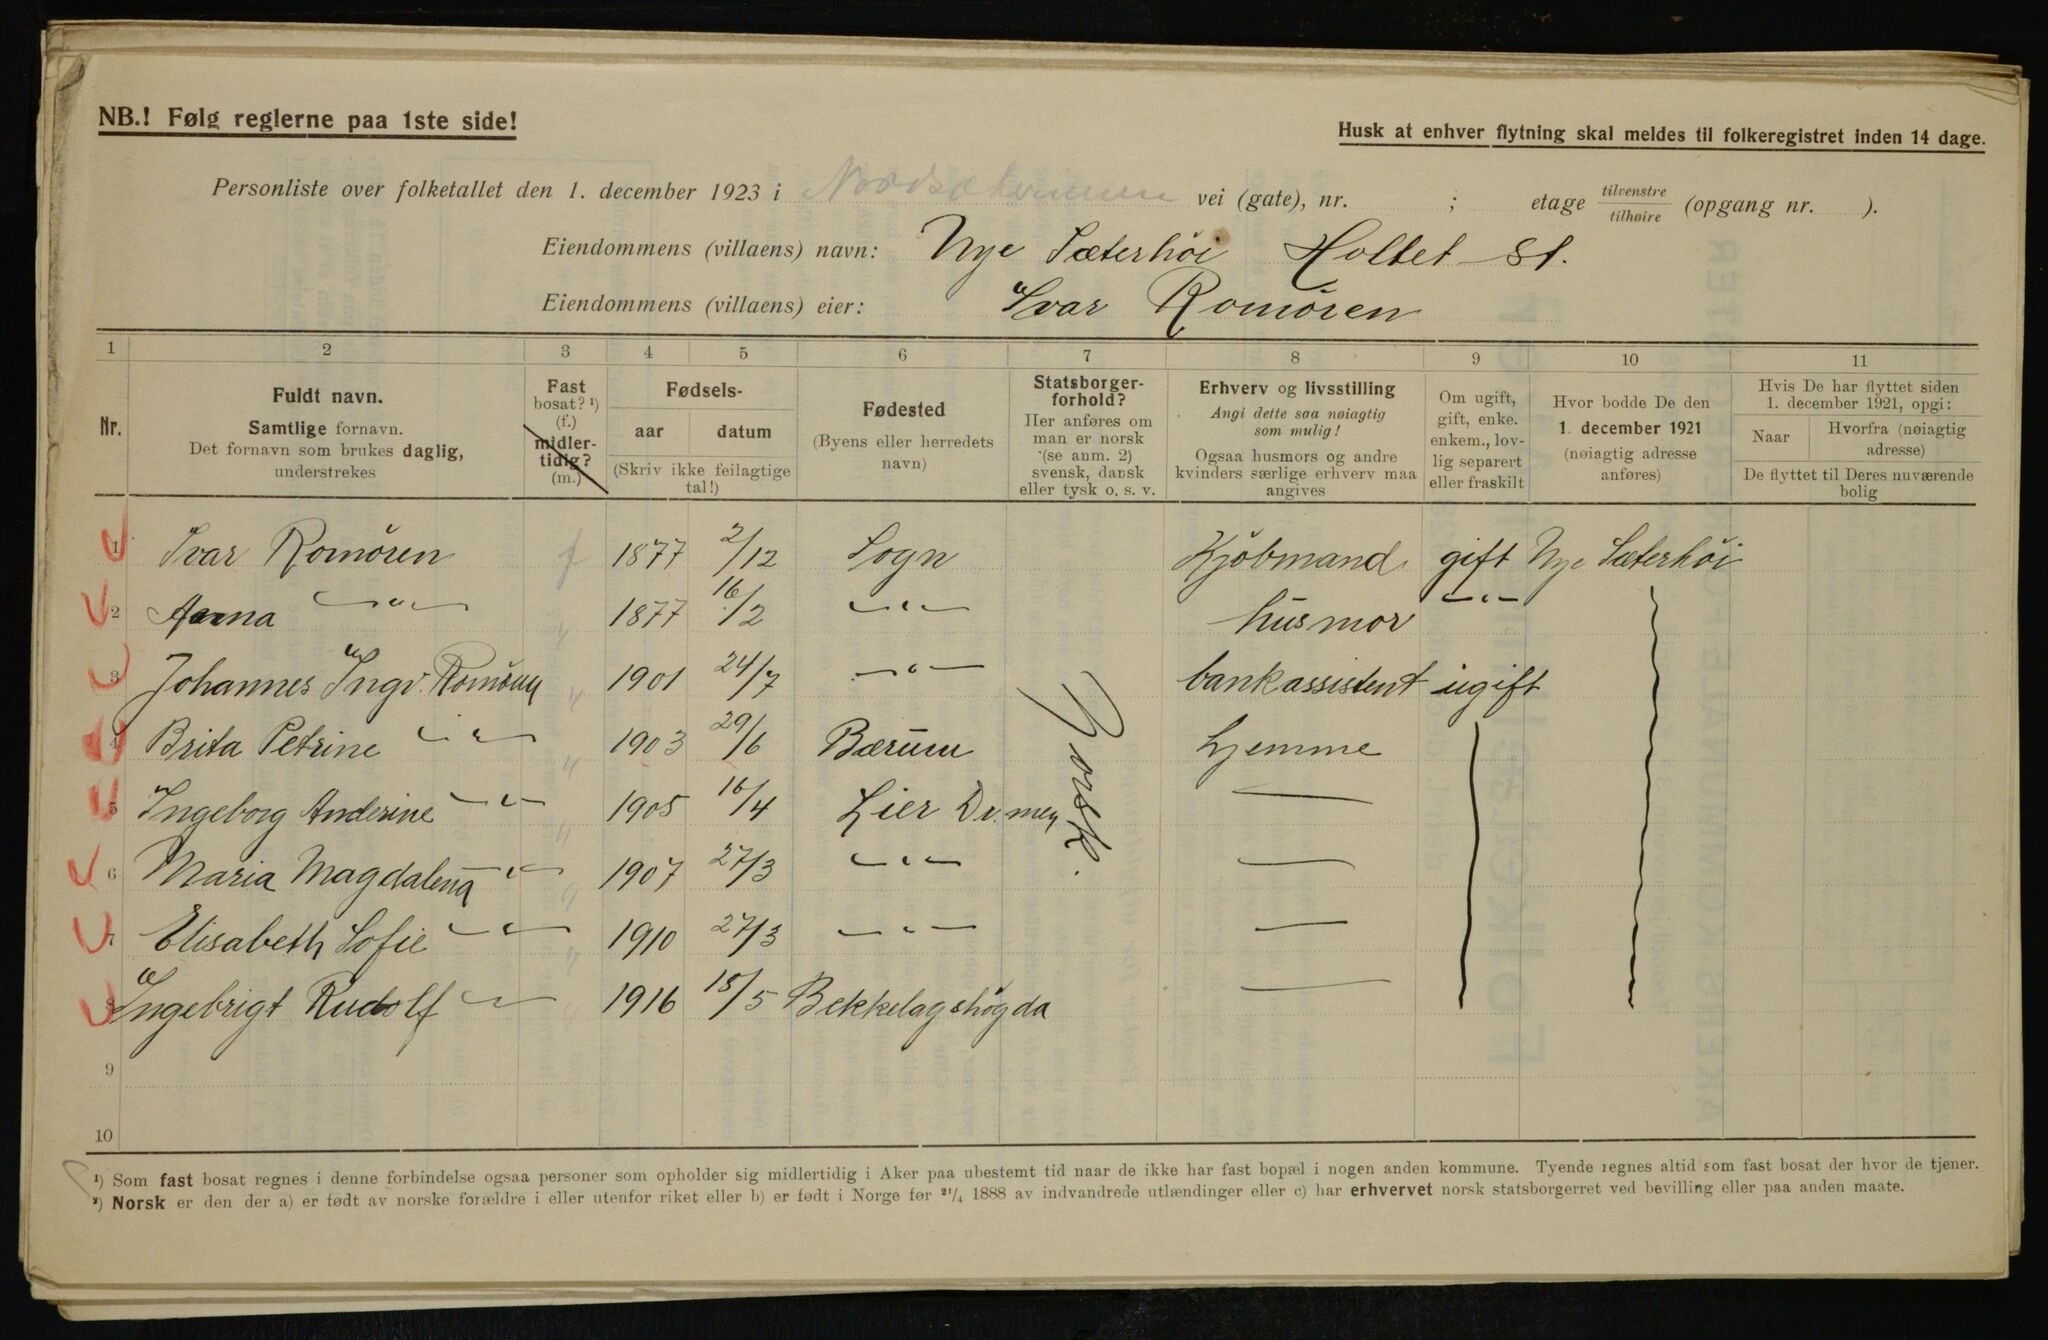 NB.! Følg reglerne paa 1ste side!
Husk at enhver flytning skal meldes til folkeregistret inden 14 dage.
Personliste over folketallet den 1. december 1923 i vei (gate), nr. ; etage tilvenstre / tilhøire (opgang nr. ).
Eiendommens (villaens) navn: Nye Sæterhöi Holtet St.
Eiendommens (villaens) eier: Ivar Romören
1 2 3 4 5 6 7 8 9 10 11
Nr.
Fuldt navn.
Samtlige fornavn.
Det fornavn som brukes daglig,
understrekes
Fast
bosat? ¹)
(f.)
midler-
tidig?
(m.)
Fødsels-
aar datum
(Skriv ikke feilagtige
tal!)
Fødested
(Byens eller herredets
navn)
Statsborger-
forhold?
Her anføres om
man er norsk
(se anm. 2)
svensk, dansk
eller tysk o. s. v.
Erhverv og livsstilling
Angi dette saa nøiagtig
som mulig!
Ogsaa husmors og andre
kvinders særlige erhverv maa
angives
Om ugift,
gift, enke.
enkem., lov-
lig separert
eller fraskilt
Hvor bodde De den
1. december 1921
(nøiagtig adresse
anføres)
Hvis De har flyttet siden
1. december 1921, opgi:
Naar Hvorfra (nøiagtig
adresse)
De flyttet til Deres nuværende
bolig
1 Ivar Romören f 1877 2/12 Sogn Kjöbmand gift Nye Sæterhöi
2 Anna —"— " 1877 16/2 —"— husmor —"—
3 Johannes Ingv. Romören " 1901 24/7 —"— bankassistent ugift
4 Brita Petrine —"— " 1903 29/6 Bærum hjemme
5 Ingeborg Anderine —"— " 1905 16/4 Lier Dr.men —
6 Maria Magdalena —"— " 1907 27/3 —"— —
7 Elisabeth Sofie —"— " 1910 27/3 —"— —
8 Ingebrigt Rudolf —"— " 1916 18/5 Bekkelagshögda —
Norsk.
9
10
¹) Som fast bosat regnes i denne forbindelse ogsaa personer som opholder sig midlertidig i Aker paa ubestemt tid naar de ikke har fast bopæl i nogen anden kommune. Tyende regnes altid som fast bosat der hvor de tjener.
²) Norsk er den der a) er født av norske forældre i eller utenfor riket eller b) er født i Norge før ²¹/₄ 1888 av indvandrede utlændinger eller c) har erhvervet norsk statsborgerret ved bevilling eller paa anden maate.